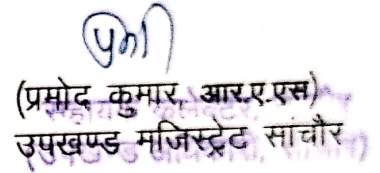 (प्रमोद कुमार, आर.ए.एस)
उपखण्ड मजिस्ट्रेट सांचौर